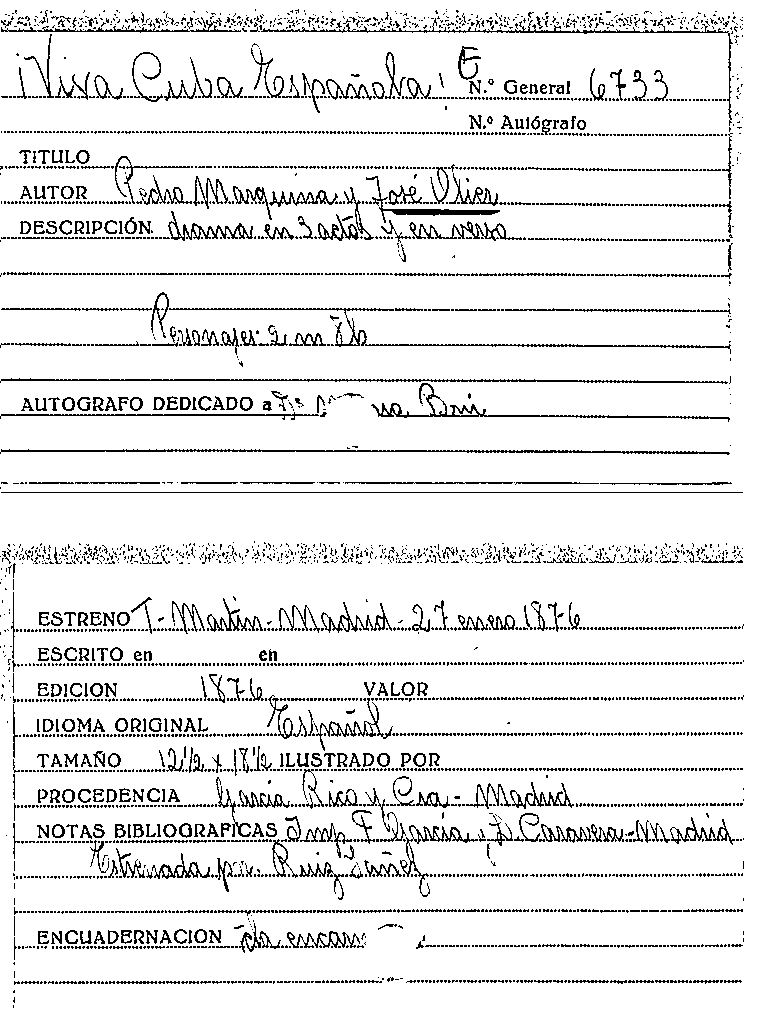 ¡Viva Cuba Española! E
N.º General 6733
N.º Autógrafo
TITULO
AUTOR Pedro Marquina y José Olier
DESCRIPCIÓN drama en 3 actos y en verso
Personajes: 2 m 8 h
AUTOGRAFO DEDICADO a
ESTRENO T. Martin - Madrid - 27 enero 1876
ESCRITO en en
EDICION 1876 VALOR
IDIOMA ORIGINAL Español
TAMAÑO 12½ x 18½ ILUSTRADO POR
PROCEDENCIA Garcia Rico y Cia - Madrid
NOTAS BIBLIOGRAFICAS Imp. F. Garcia y D. Caravera - Madrid
Estrenada por: Ruiz Yáñez
ENCUADERNACION